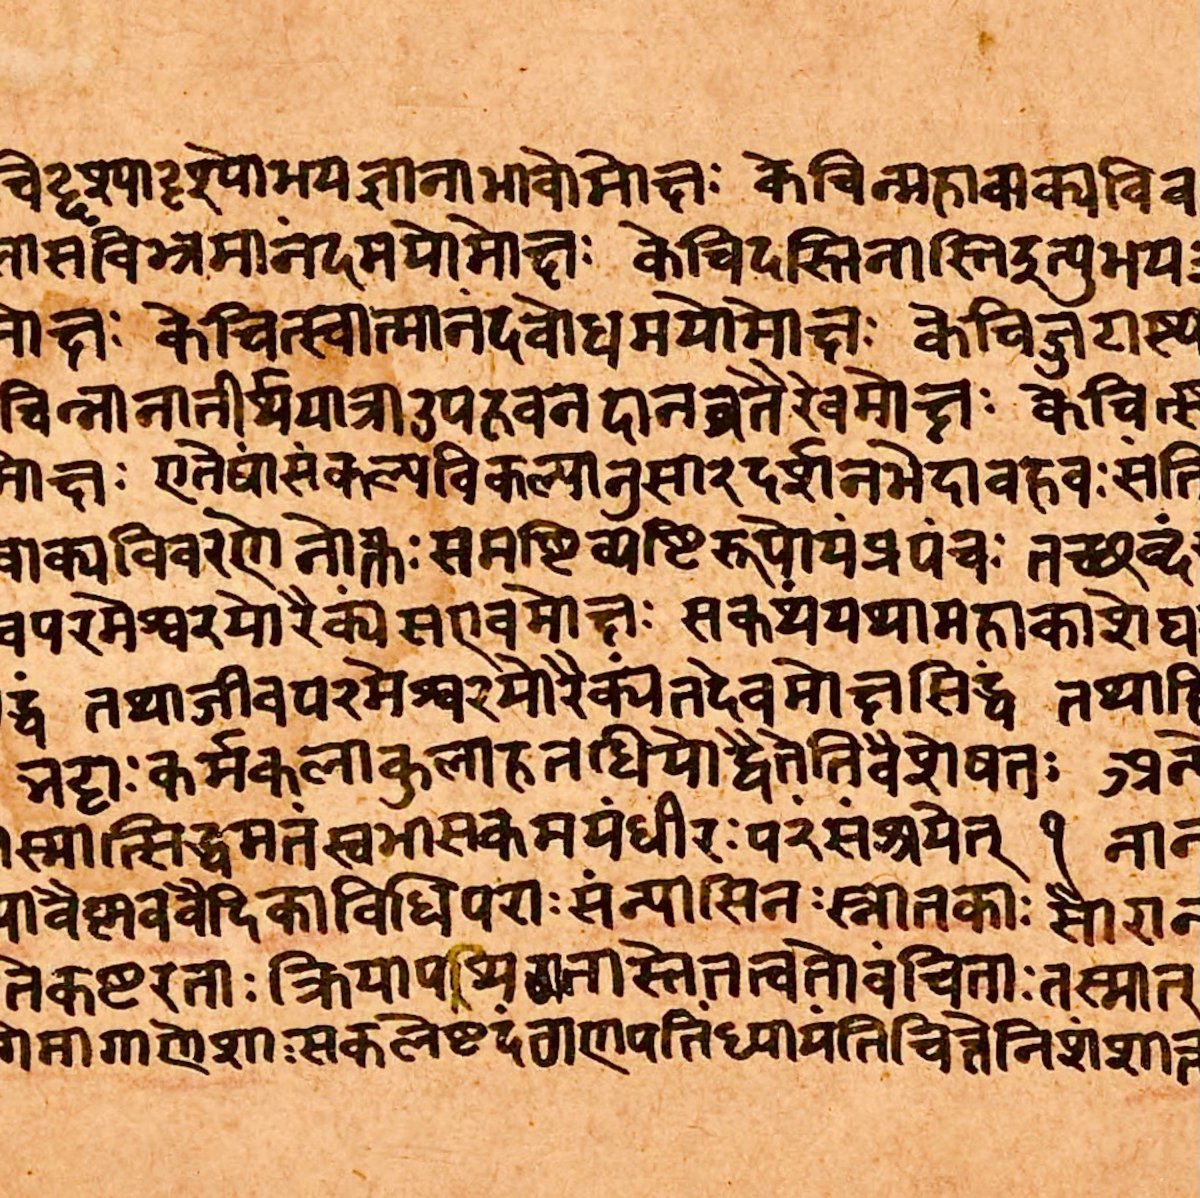 चिद्दृश्यादृश्योभयज्ञानाभावोमोक्षः केचिन्महावाक्यविव
लासविभ्रमानंदमयोमोक्षः केचिदस्तिनास्तिइत्युभय
मोक्षः केचित्स्वात्मानंदबोधमयोमोक्षः केचि
चिन्नानातीर्थयात्राजपहवनदानव्रतैरेवमोक्षः केचित्स
मोक्षः एतेषांसंकल्पविकल्पानुसारदर्शनभेदाबहवःसंति
वाक्यविवरणेनोक्तःसमष्टिव्यष्टिरूपोयंप्रपंचः तच्छब्दं
वपरमेश्वरयोरैक्यंसएवमोक्षः सकथंयथामहाकाशेघ
द्धं तथाजीवपरमेश्वरयोरैक्यंतदेवमोक्षसिद्धं तथाहि
भट्टाःकर्मकलाकुलाहतधियोद्वैतेतिवैशेषतः अन्ये
स्मात्सिद्धमतंस्वभासकमयंधीरःपरंसंश्रयेत् १ नान
यावैष्णववैदिकाविधिपराःसंन्यासिनःस्नातकाः सौरान
तिकष्टरताःक्रियापथि तास्तेतत्वतोवंचिताःतस्मात्
गाणेशाःसकलेष्टदंगणपतिंध्यायंतिचित्तेनिशंशाक्त